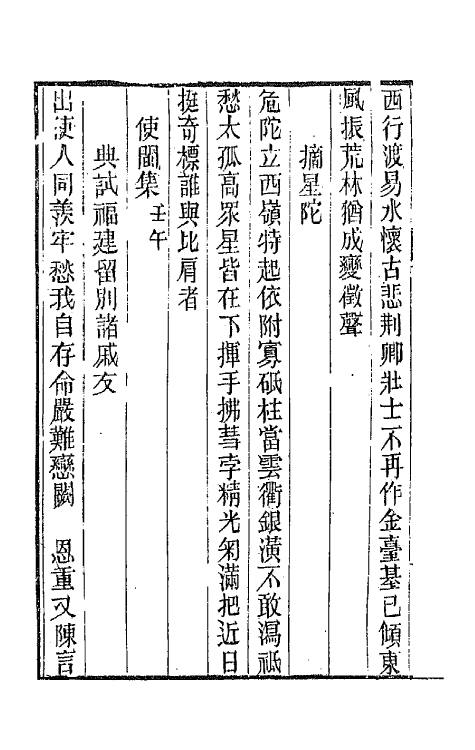 西行渡易水懷古悲荆卿壯士不再作金臺基已傾東
風振荒林猶成變徵聲
摘星陀
危陀立西嶺特起依附寡砥柱當雲衢銀潢不敢瀉祗
愁太孤高眾星皆在下揮手拂彗孛精光匊滿把近日
挺奇標誰與比肩者
使閩集 壬午
典試福建留別諸戚友
出使人同羨牢愁我自存命嚴難戀闕 恩重又陳言